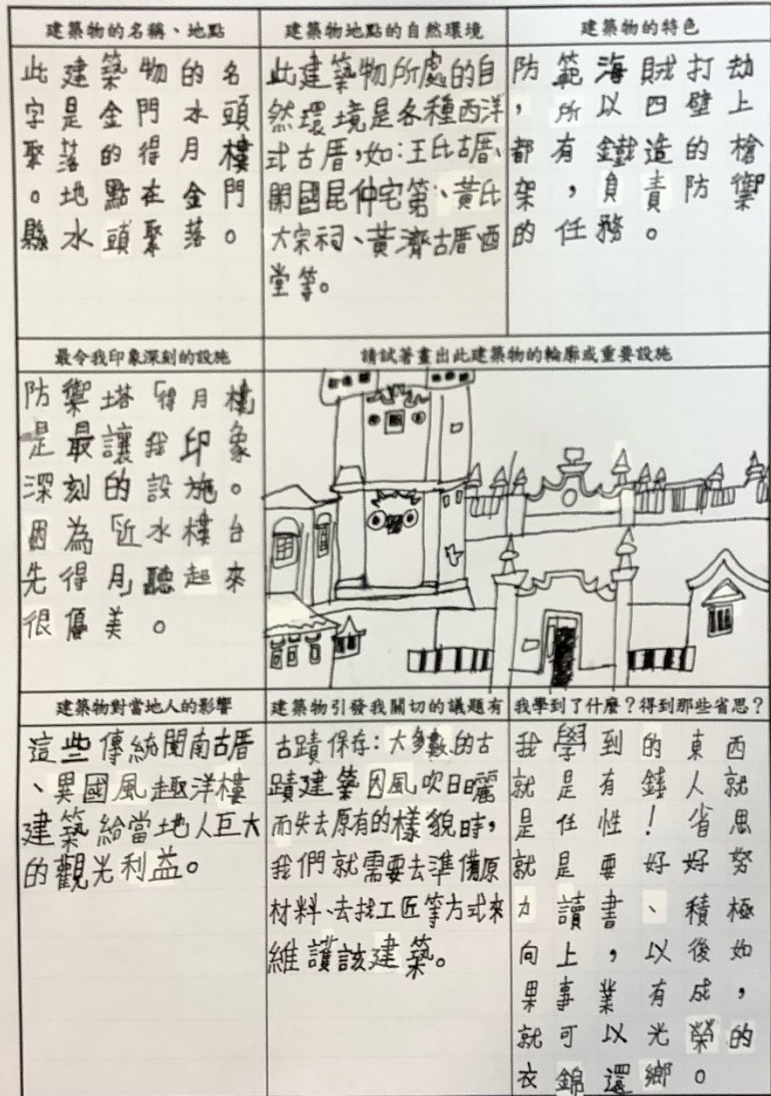 建築物的名稱、地點
此建築物的名
字是金門水頭
聚落的得月樓
。地點在金門
縣水頭聚落。
建築物地點的自然環境
此建築物所處的自
然環境是各種西洋
式古厝,如:王氏古厝、
開國昆仲宅第、黃氏
大宗祠、黃濟古厝酉
堂等。
建築物的特色
防範海賊打劫
,所以四壁上
都有鐵造的槍
架,負責防禦
的任務。
最令我印象深刻的設施
防禦塔「得月樓」
是最讓我印象
深刻的設施。
因為「近水樓台
先得月」聽起來
很優美。
請試著畫出此建築物的輪廓或重要設施
建築物對當地人的影響
這些傳統閩南古厝
、異國風趣洋樓
建築給當地人巨大
的觀光利益。
建築物引發我關切的議題有
古蹟保存:大多數的古
蹟建築因風吹日曬
而失去原有的樣貌時,
我們就需要去準備原
材料、去找工匠等方式來
維護該建築。
我學到了什麼?得到那些省思?
我學到的東西
就是有錢人就
是任性!省思
就是要好好努
力讀書、積極
向上,以後如
果事業有成,
就可以光榮的
衣錦還鄉。